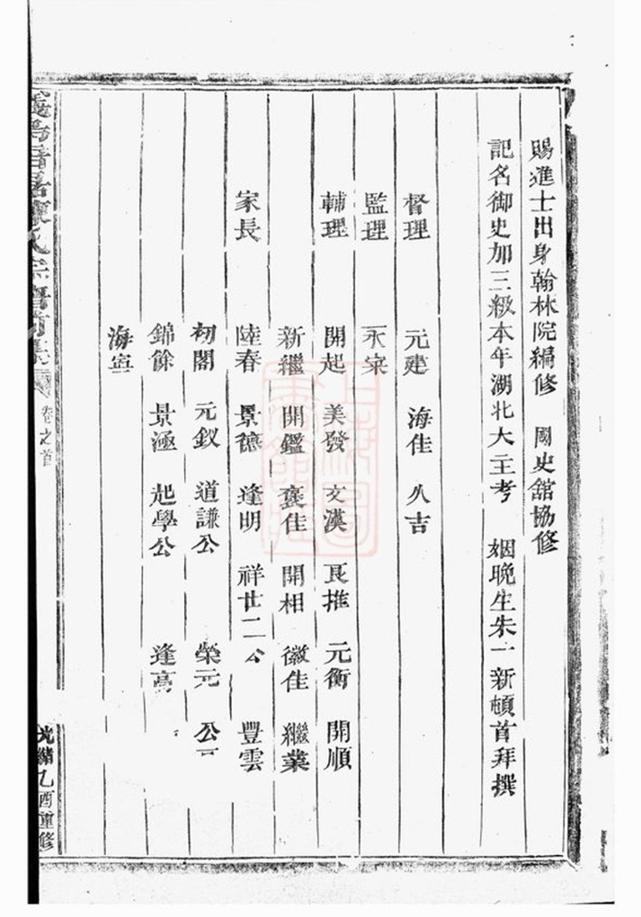 賜進士出身翰林院編修 國史舘協修
記名御史加三級本年湖北大主考 姻晚生朱一新頓首拜撰
督理 元建 海佳 久吉
監理 永寀
輔理 開起 美發 文漢 良推 元衡 開順
新繼 開鑑 襃佳 開相 徽佳 繼葉
家長 陸春 景德 逢明 祥廿二公 豐雲
初閣 元釵 道謙公 榮元 公
錦餘 景涵 起學公 逢高
海寧
宗譜 卷之首 光緒乙酉重修